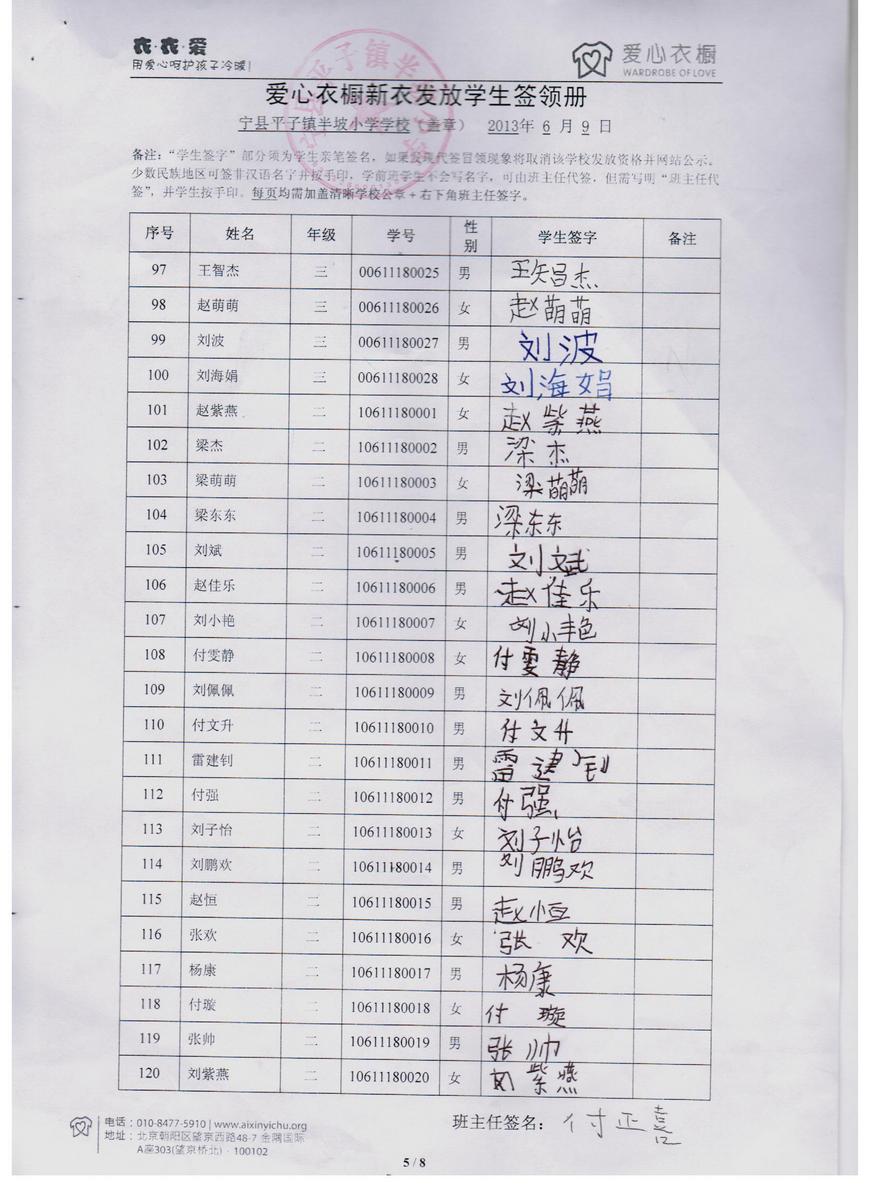 衣·衣·爱
用爱心呵护孩子冷暖!
爱心衣橱
WARDROBE OF LOVE
爱心衣橱新衣发放学生签领册
宁县平子镇半坡小学学校（盖章） 2013年 6 月 9 日
备注：“学生签字”部分须为学生亲笔签名，如果发现代签冒领现象将取消该学校发放资格并网站公示。
少数民族地区可签非汉语名字并按手印，学前班学生不会写名字，可由班主任代签，但需写明“班主任代
签”，并学生按手印。每页均需加盖清晰学校公章+右下角班主任签字。
序号 姓名 年级 学号 性别 学生签字 备注
97 王智杰 三 00611180025 男 王智杰
98 赵萌萌 三 00611180026 女 赵萌萌
99 刘波 三 00611180027 男 刘波
100 刘海娟 三 00611180028 女 刘海娟
101 赵紫燕 二 10611180001 女 赵紫燕
102 梁杰 二 10611180002 男 梁杰
103 梁萌萌 二 10611180003 女 梁萌萌
104 梁东东 二 10611180004 男 梁东东
105 刘斌 二 10611180005 男 刘斌
106 赵佳乐 二 10611180006 男 赵佳乐
107 刘小艳 二 10611180007 女 刘小艳
108 付雯静 二 10611180008 女 付雯静
109 刘佩佩 二 10611180009 男 刘佩佩
110 付文升 二 10611180010 男 付文升
111 雷建钊 二 10611180011 男 雷建钊
112 付强 二 10611180012 男 付强
113 刘子怡 二 10611180013 女 刘子怡
114 刘鹏欢 二 10611180014 男 刘鹏欢
115 赵恒 二 10611180015 男 赵恒
116 张欢 二 10611180016 女 张欢
117 杨康 二 10611180017 男 杨康
118 付璇 二 10611180018 女 付璇
119 张帅 二 10611180019 男 张帅
120 刘紫燕 二 10611180020 女 刘紫燕
班主任签名： 付正喜
电话：010-8477-5910 | www.aixinyichu.org
地址：北京朝阳区望京西路48-7 金隅国际
A座303(望京桥北) · 100102
5 / 8